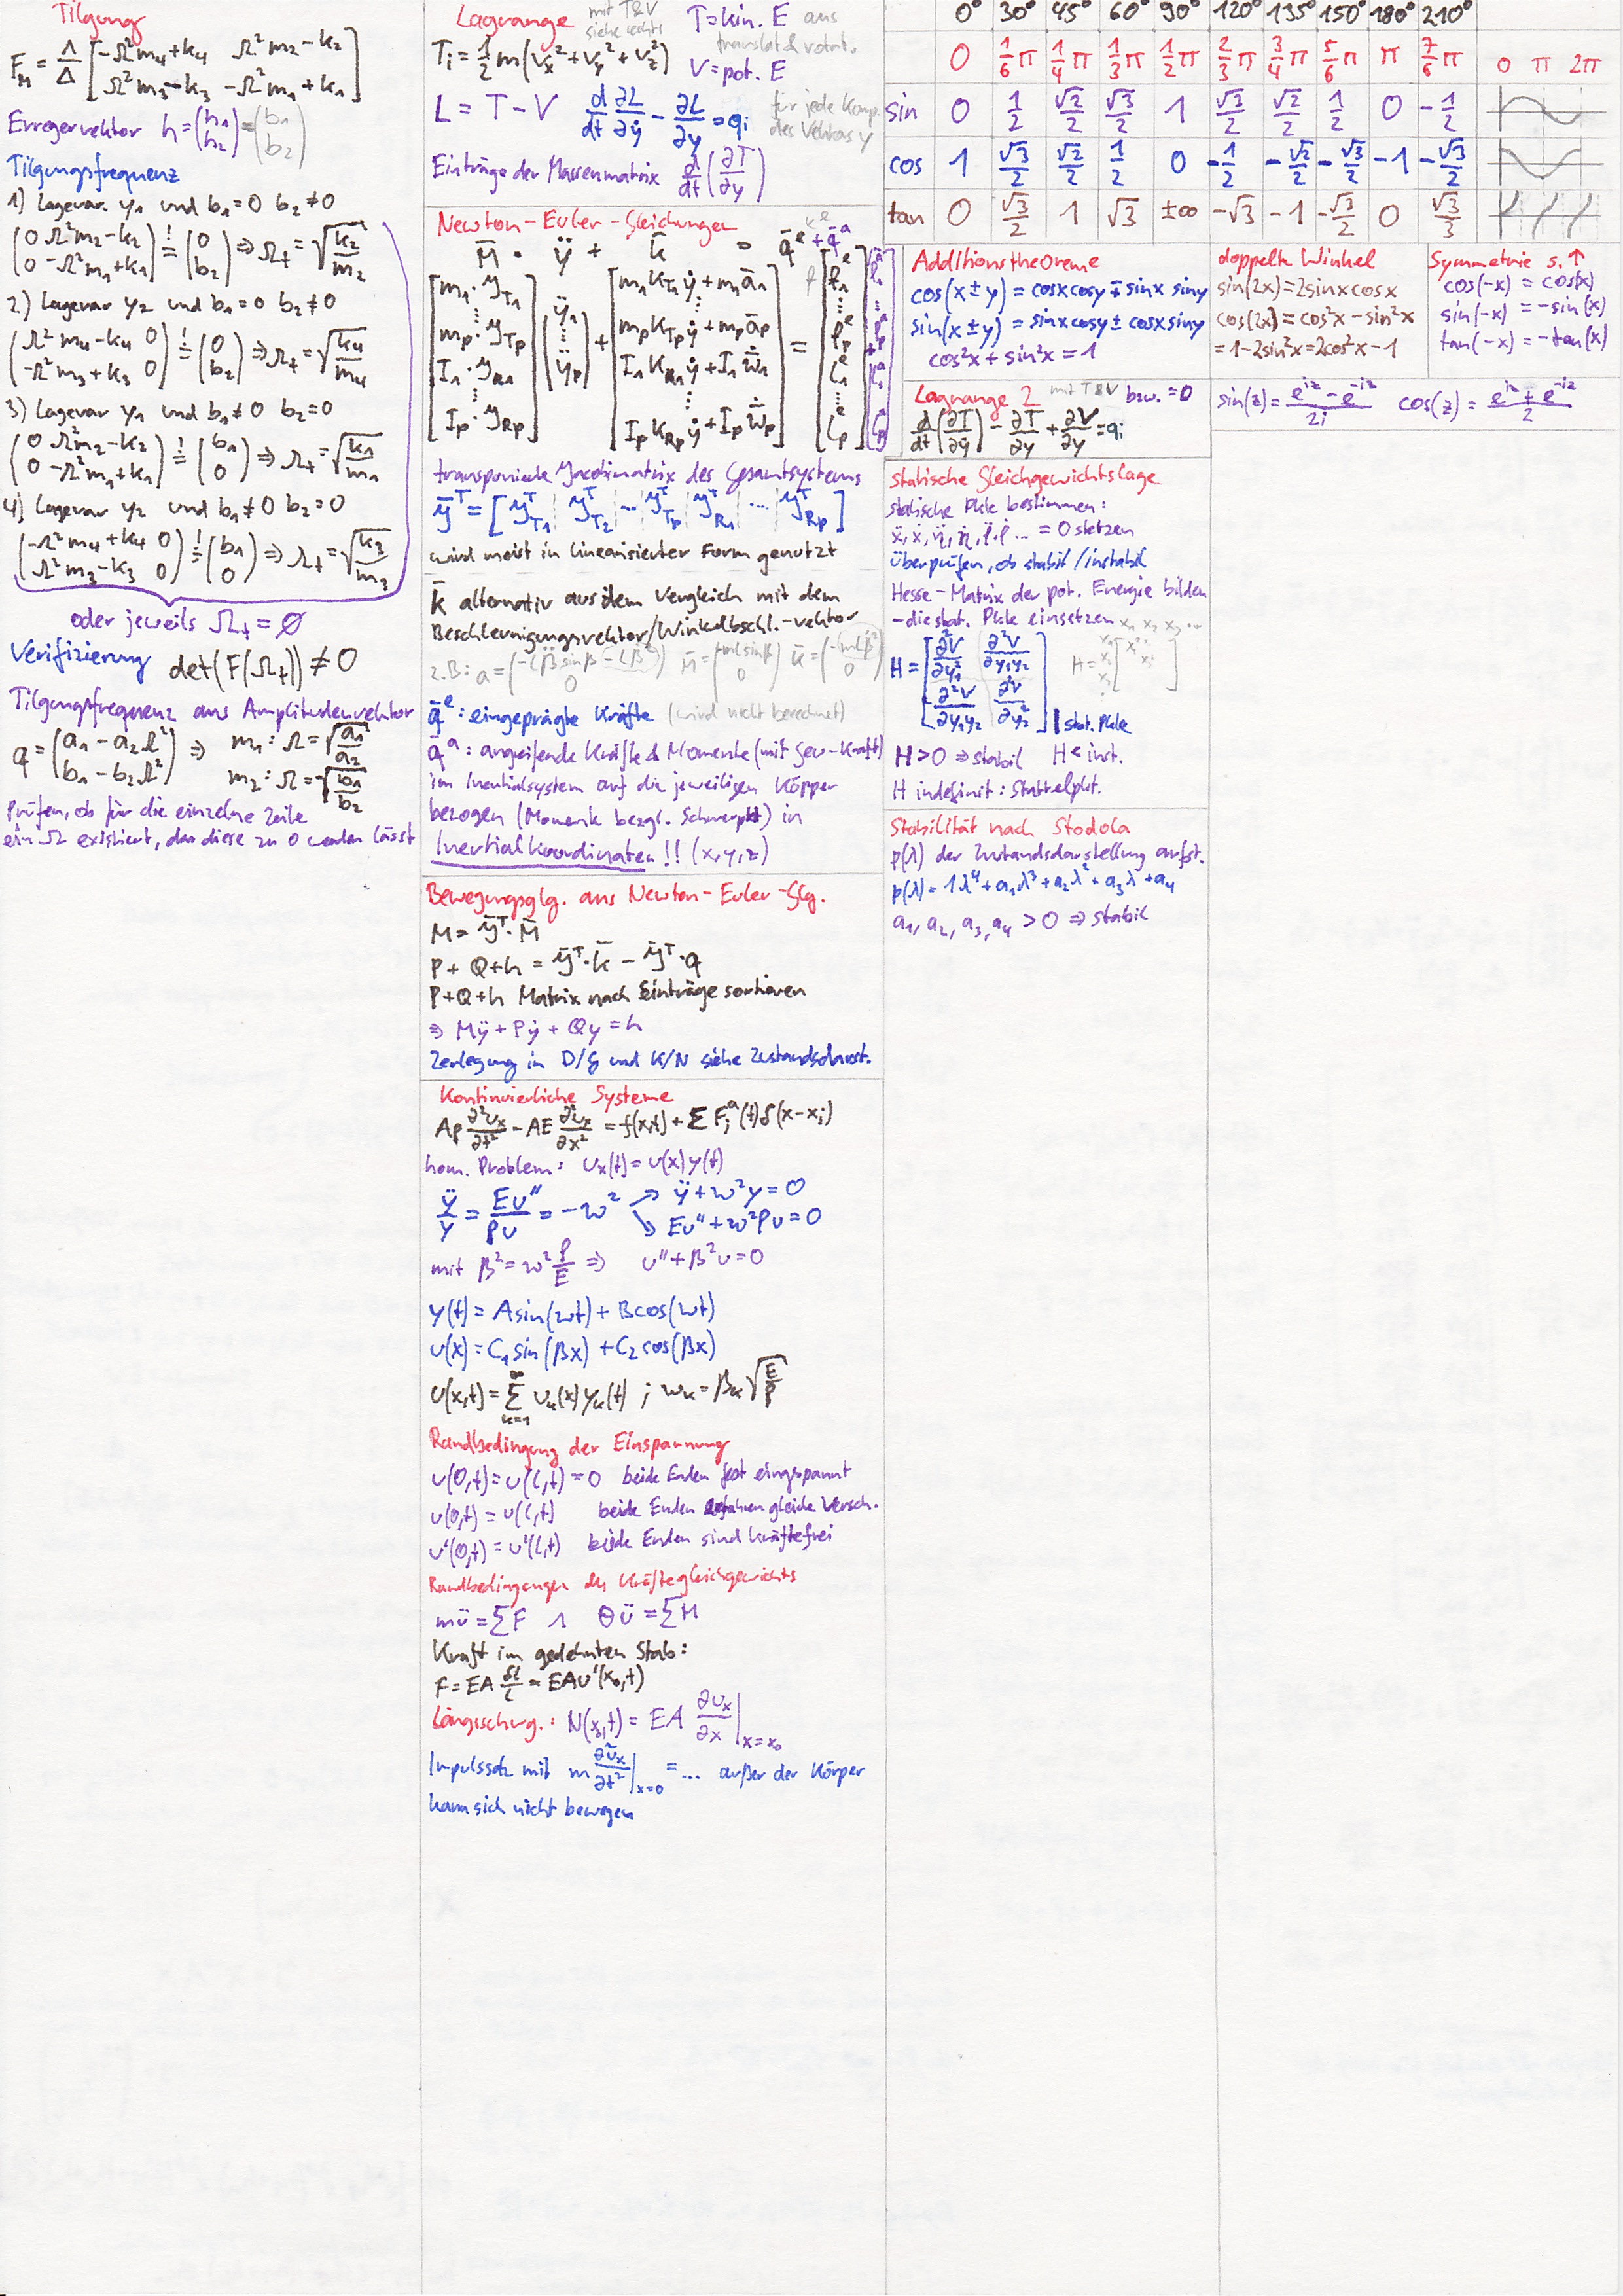 Tilgung
F_M = Λ/Δ [-Ω²m₄+k₄  Ω²m₂-k₂
Ω²m₃-k₃  -Ω²m₁+k₁]
Erregervektor h=(h₁ h₂)=(b₁ b₂)
Tilgungsfrequenz
1) Lagevar. y₁ und b₁=0 b₂≠0
(0 Ω²m₂-k₂
0 -Ω²m₁+k₁) != (0 b₂) ⇒ Ω_t = √(k₂/m₂)
2) Lagevar y₂ und b₁=0 b₂≠0
(-Ω²m₄-k₄ 0
-Ω²m₃+k₃ 0) != (0 b₂) ⇒ Ω_t = √(k₄/m₄)
3) Lagevar y₁ und b₁≠0 b₂=0
(0 Ω²m₂-k₂
0 -Ω²m₁+k₁) != (b₁ 0) ⇒ Ω_t = √(k₁/m₁)
4) Lagevar y₂ und b₁≠0 b₂=0
(-Ω²m₄+k₄ 0
Ω²m₃-k₃ 0) != (b₁ 0) ⇒ Ω_t = √(k₃/m₃)
oder jeweils Ω_t = ∅
Verifizierung det(F(Ω_t)) ≠ 0
Tilgungsfrequenz aus Amplitudenvektor
q = (a₁-a₂Ω²
b₁-b₂Ω²) ⇒ m₁: Ω=√(a₁/a₂)
m₂: Ω=√(b₁/b₂)
Prüfen, ob für die einzelne Zeile
ein Ω existiert, das diese zu 0 werden lässt
Lagrange mit T&V siehe rechts
T=kin. E aus translat & rotat.
T_i = 1/2 m(v_x²+v_y²+v_z²)
V=pot. E
L = T-V  d/dt ∂L/∂ẏ - ∂L/∂y = q_i für jede Komp. des Vektors y
Einträge der Massenmatrix d/dt(∂T/∂y)
Newton-Euler-Gleichungen
M̄ · ÿ + k̄ = q̄^e + q̄^a
[m₁·J_T1
⋮
m_p·J_Tp
I₁·J_R1
⋮
I_p·J_Rp] [ÿ₁ ⋮ ÿ_p] + [m₁K_T1ẏ+m₁ā₁
⋮
m_pK_Tpẏ+m_pā_p
I₁K_R1ẏ+I₁ẇ̄₁
⋮
I_pK_Rpẏ+I_pẇ̄_p] = [f₁^e ⋮ f_p^e l₁^e ⋮ l_p^e] + [f₁^a ⋮ f_p^a l₁^a ⋮ l_p^a]
transponierte Jacobimatrix des Gesamtsystems
J̄^T = [J^T_T1 J^T_T2 ... J^T_Tp J^T_R1 ... J^T_Rp]
wird meist in linearisierter Form genutzt
k̄ alternativ aus dem Vergleich mit dem
Beschleunigungsvektor/Winkelbschl.-vektor
z.B: a=(-lβ̈sinβ-lβ̇² 0) M̄=(-mlsinβ 0) k̄=(-mlβ̇² 0)
q̄^e: eingeprägte Kräfte (wird nicht berechnet)
q̄^a: angreifende Kräfte & Momente (mit Gew-Kraft)
im Inertialsystem auf die jeweiligen Köpper
bezogen (Momente bezgl. Schwerpkt) in
Inertialkoordinaten!! (x,y,z)
Bewegungsglg. aus Newton-Euler-Glg.
M = J̄^T·M̄
P+Q+h = J̄^T·k̄ - J̄^T·q
P+Q+h Matrix nach Einträge sortieren
⇒ Mÿ+Pẏ+Qy=h
Zerlegung in D/G und K/N siehe Zustandsdarst.
Kontinuierliche Systeme
Aρ ∂²u_x/∂t² - AE ∂²u_x/∂x² = f(x,t) + Σ F_i^a(t)δ(x-x_i)
hom. Problem: u_x(t) = u(x)y(t)
ÿ/y = Eu''/ρu = -w² → ÿ+w²y=0
↘ Eu''+w²ρu=0
mit β²=w² ρ/E ⇒ u''+β²u=0
y(t) = Asin(wt)+Bcos(wt)
u(x) = C₁sin(βx)+C₂cos(βx)
u(x,t) = Σ_{k=1}^∞ u_k(x)y_k(t) ; w_k=β_k√(E/ρ)
Randbedingung der Einspannung
u(0,t)=u(l,t)=0 beide Enden fest eingspannt
u(0,t)=u(l,t) beide Enden erfahren gleiche Versch.
u'(0,t)=u'(l,t) beide Enden sind kräftefrei
Randbedingungen des Kräftegleichgewichts
mü=ΣF ∧ Θü=ΣM
Kraft im gedehnten Stab:
F=EA δl/l = EAu'(x₀,t)
Längsschwg.: N(x₀,t) = EA ∂u_x/∂x |_{x=x₀}
Impulssatz mit m ∂²u_x/∂t² |_{x=0} = ... außer der Körper
kann sich nicht bewegen
0° 30° 45° 60° 90° 120° 135° 150° 180° 210°
0 1/6π 1/4π 1/3π 1/2π 2/3π 3/4π 5/6π π 7/6π 0 π 2π
sin 0 1/2 √2/2 √3/2 1 √3/2 √2/2 1/2 0 -1/2
cos 1 √3/2 √2/2 1/2 0 -1/2 -√2/2 -√3/2 -1 -√3/2
tan 0 √3/2 1 √3 ±∞ -√3 -1 -√3/2 0 √3/3
Additionstheoreme
cos(x±y) = cosxcosy∓sinx siny
sin(x±y) = sinxcosy±cosxsiny
cos²x+sin²x=1
doppelte Winkel
sin(2x)=2sinxcosx
cos(2x)=cos²x-sin²x
=1-2sin²x=2cos²x-1
Symmetrie s.↑
cos(-x) = cos(x)
sin(-x) = -sin(x)
tan(-x) = -tan(x)
Lagrange 2 mit T&V bzw. =0
d/dt(∂T/∂ẏ) - ∂T/∂y + ∂V/∂y = q_i
sin(z) = (e^{iz}-e^{-iz})/2i cos(z) = (e^{iz}+e^{-iz})/2
statische Gleichgewichtslage
statische Pkte bestimmen:
ẍ,ẋ,η̈,η̇,φ̈,φ̇ ... =0 setzen
überprüfen, ob stabil/instabil
Hesse-Matrix der pot. Energie bilden
-die stat. Pkte einsetzen x₁ x₂ x₃ ...
H = [∂²V/∂y₁² ∂²V/∂y₁y₂
∂²V/∂y₁y₂ ∂²V/∂y₂²] | stat. Pkte
H>0 ⇒ stabil H< inst.
H indefinit: Sattelpkt.
Stabilität nach Stodola
p(λ) der Zustandsdarstellung aufst.
p(λ)=1λ⁴+a₁λ³+a₂λ²+a₃λ+a₄
a₁,a₂,a₃,a₄ >0 ⇒ stabil